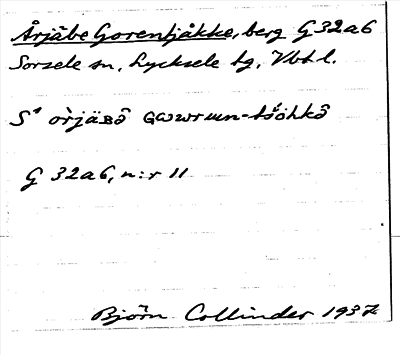 Årjäbe Gorentjåkke, berg G 32a6
Sorsele sn, Lycksele tg, Vbt l.
S¹ òrjäʙô ɢɯwrɯn-tśöhkô
G 32a6, n:r 11
Björn Collinder 1937